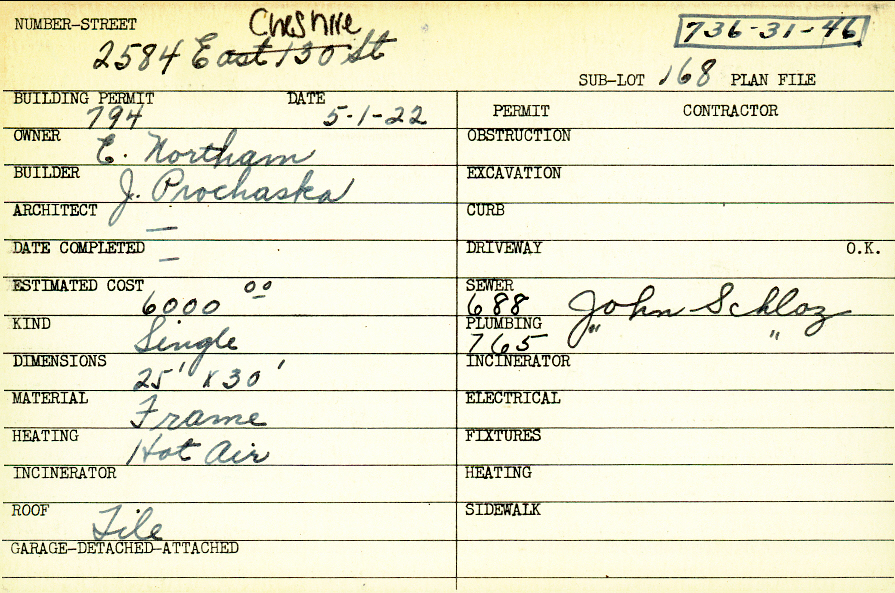 NUMBER-STREET Cheshire 736-31-46
2584 East 130 St
SUB-LOT 168 PLAN FILE
BUILDING PERMIT DATE
794 5-1-22
PERMIT CONTRACTOR
OWNER E. Northam
OBSTRUCTION
BUILDER J. Prochaska
EXCAVATION
ARCHITECT —
CURB
DATE COMPLETED —
DRIVEWAY O.K.
ESTIMATED COST 6000 00
SEWER 688 John Schloz
KIND Single
PLUMBING 765 " "
DIMENSIONS 25' x 30'
INCINERATOR
MATERIAL Frame
ELECTRICAL
HEATING Hot Air
FIXTURES
INCINERATOR
HEATING
ROOF Tile
SIDEWALK
GARAGE-DETACHED-ATTACHED